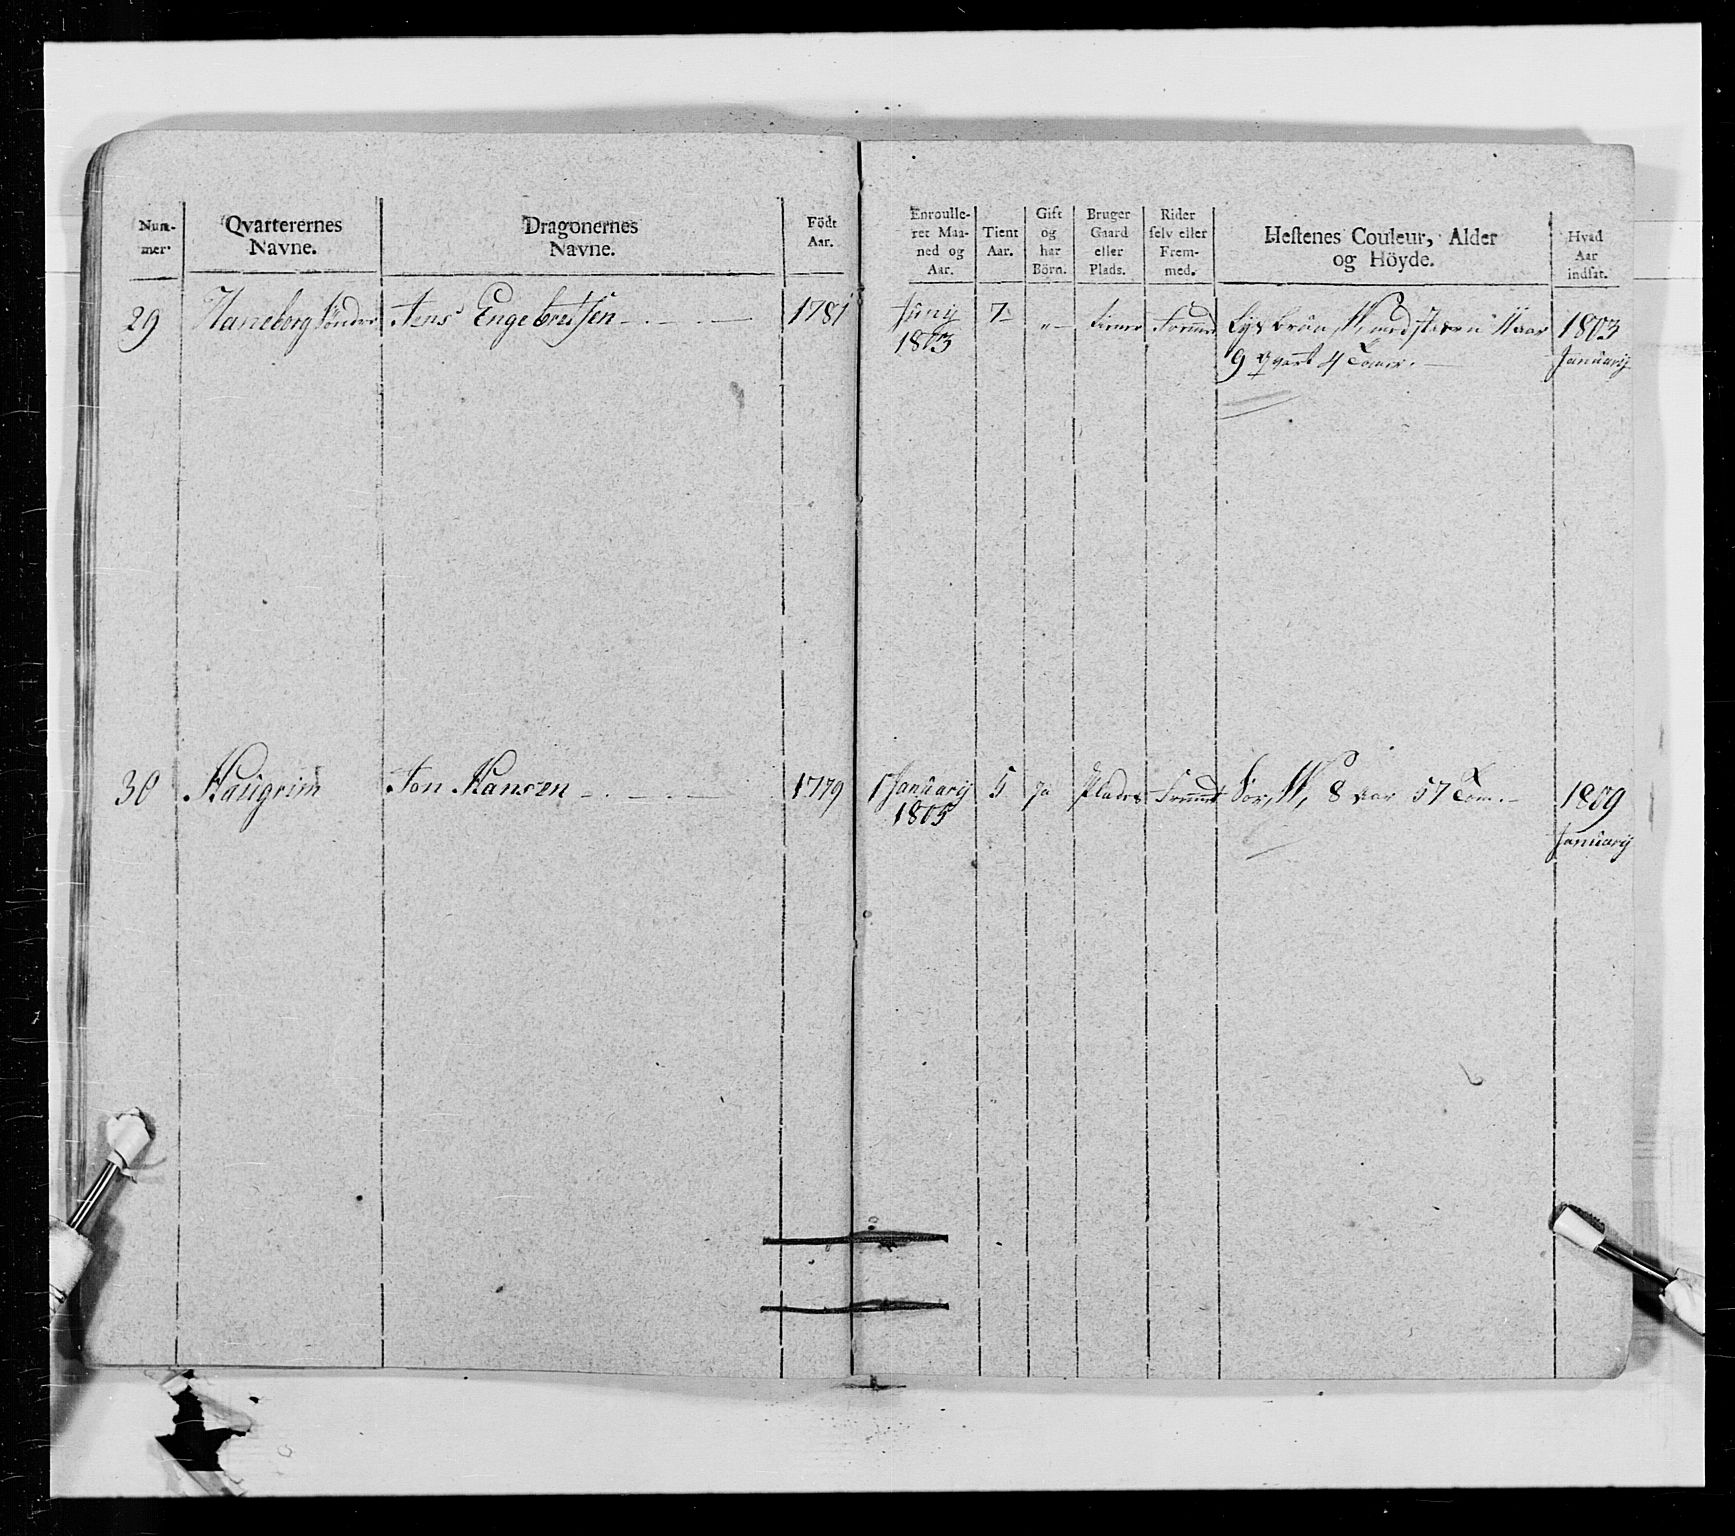 Num-
mer.
Qvarterernes
Navne.
Dragonernes
Navne.
Födt
Aar.
Enroulle-
ret Maa-
ned og
Aar.
Tient
Aar.
Gift
og
har
Börn.
Bruger
Gaard
eller
Plads.
Rider
selv eller
Frem-
med.
Hestenes Couleur, Alder
og Höyde.
Hvad
Aar
indsat.
29 Haneborg Söndre Jens Engebretsen 1781 Junij 7 "- tiener Fremmed Lys brun, W, med stiern 11 aar 1803
1803 9 qvart 4 Tomr. Januarij
30 Haugrim Jon Hansen 1779 1 Januarij 5 Ja Plads Fremmed Sor, W, 8 aar 57 Tom. 1809
1805 Januarij